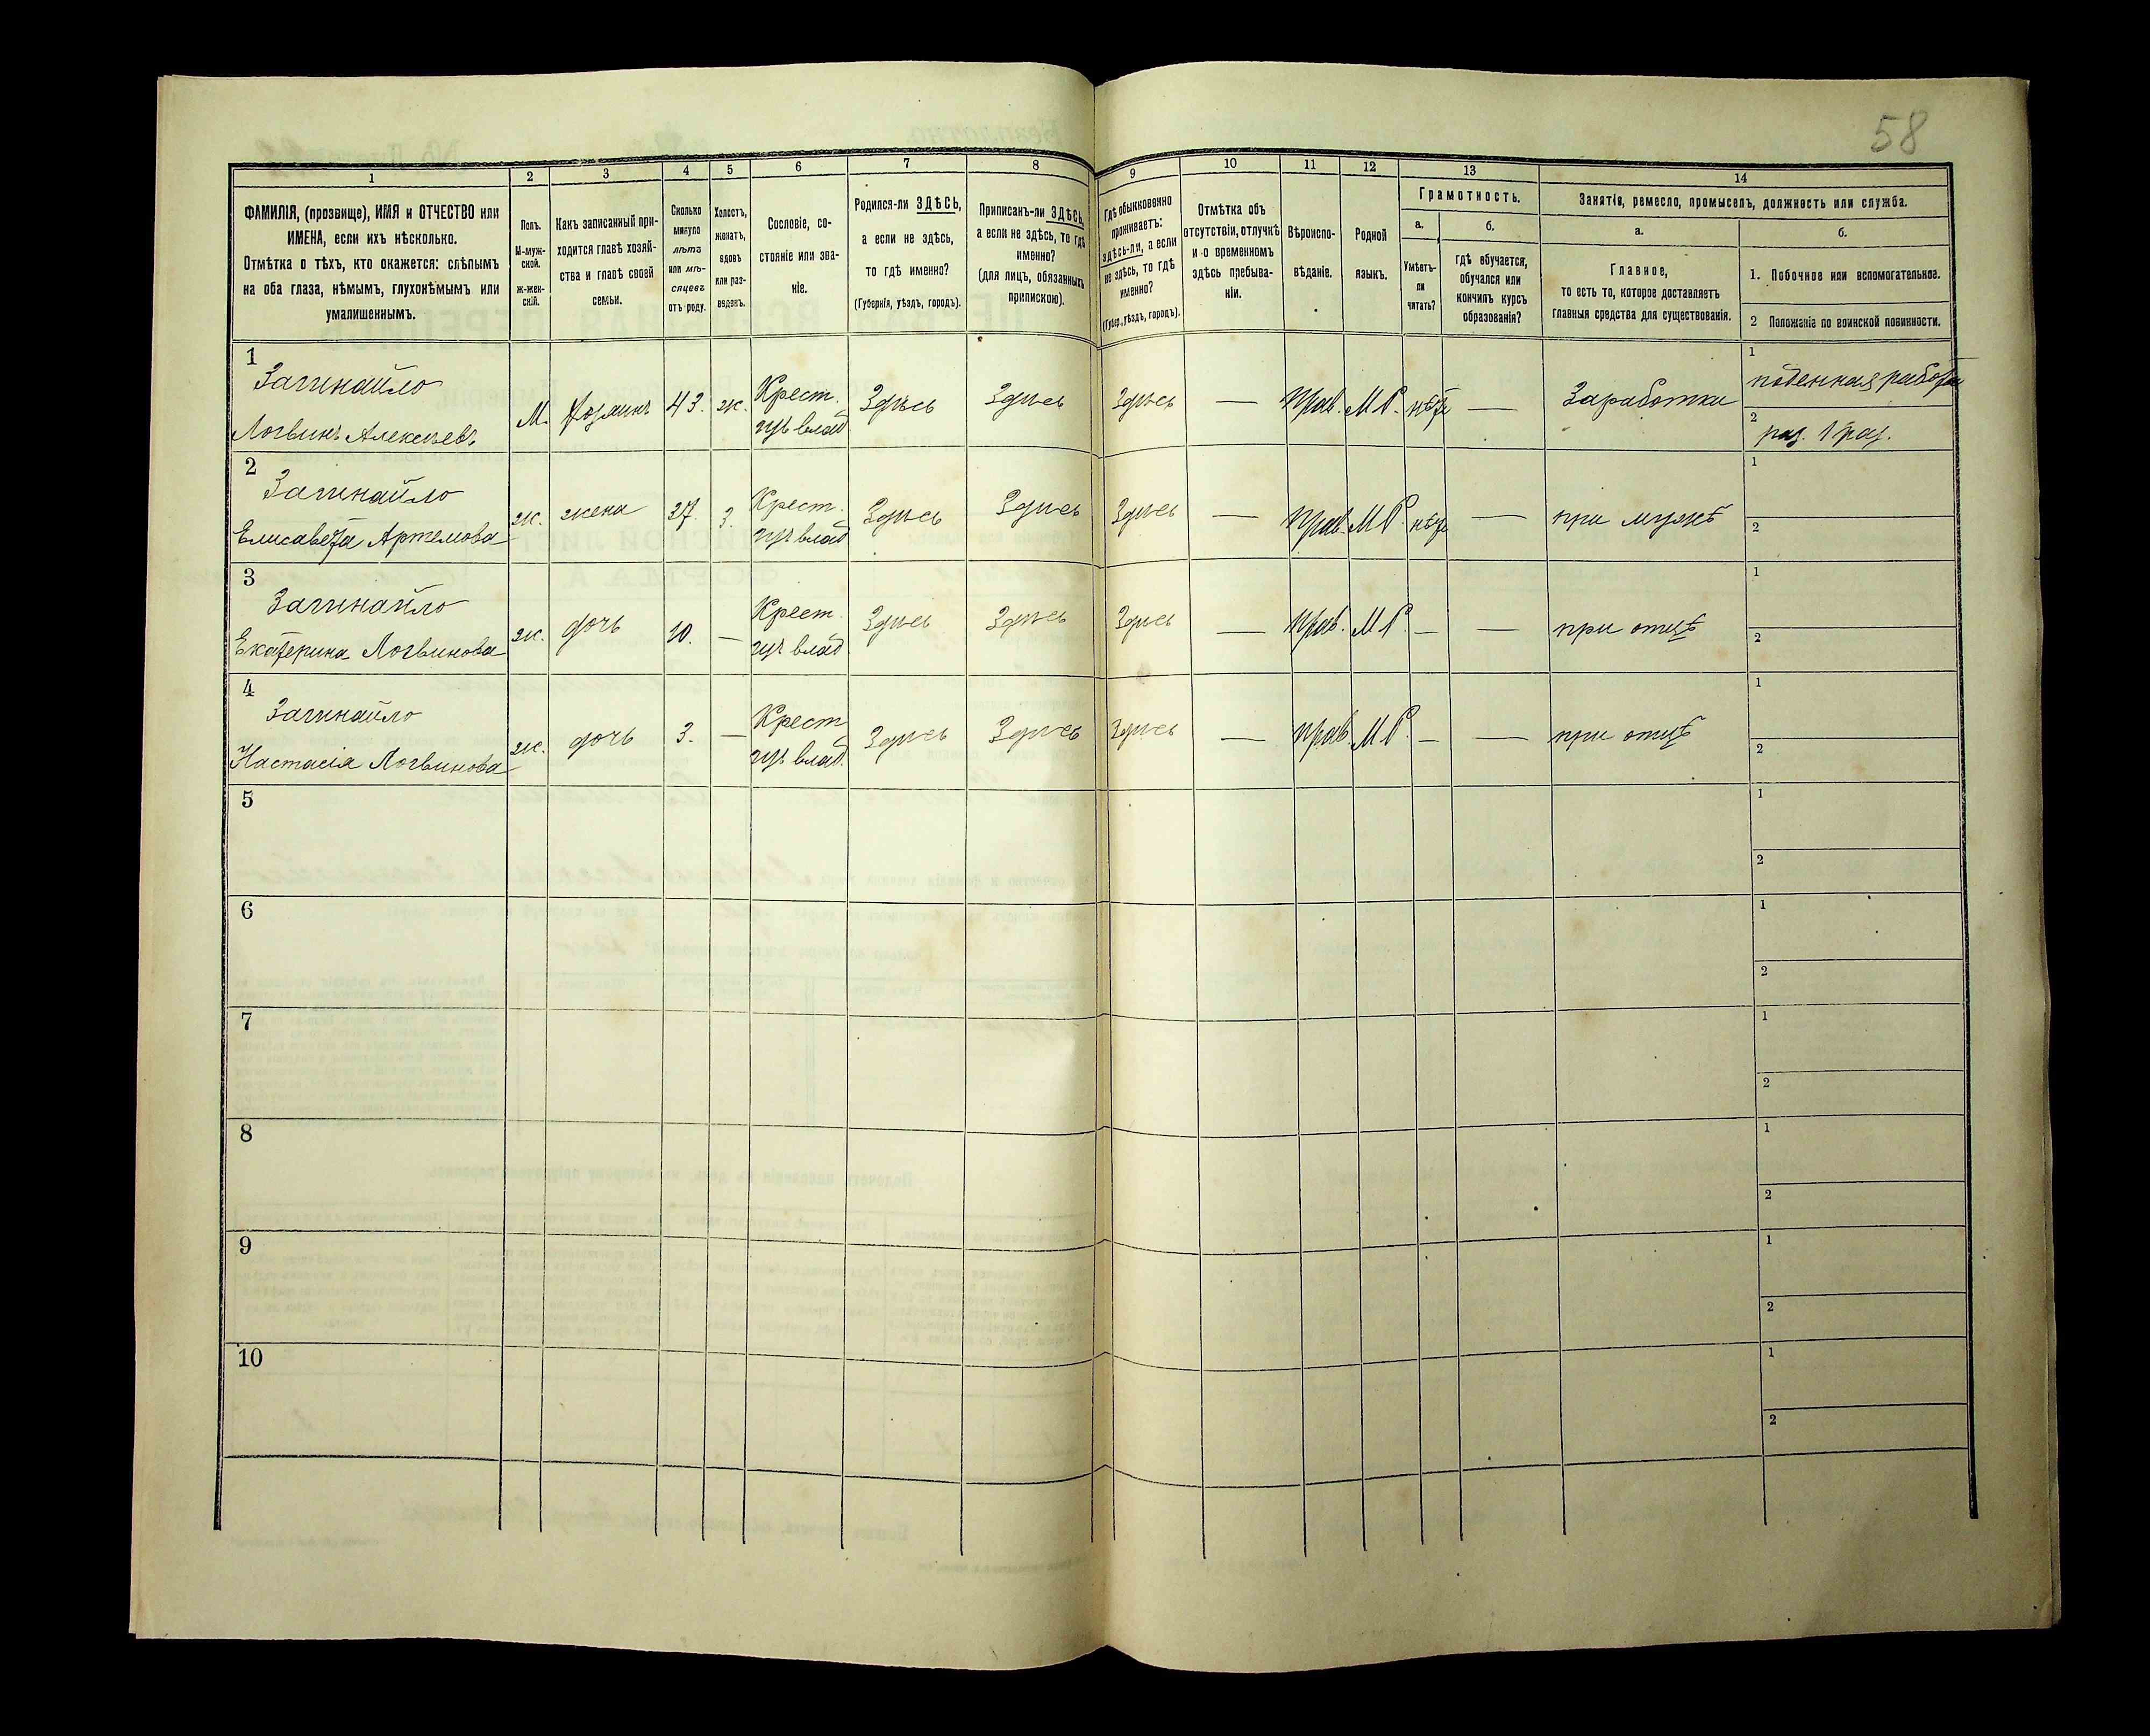 58
1 2 3 4 5 6 7 8 9 10 11 12 13 14
ФАМИЛІЯ, (прозвище), ИМЯ и ОТЧЕСТВО или
ИМЕНА, если ихъ нѣсколько.
Отмѣтка о тѣхъ, кто окажется: слѣпымъ
на оба глаза, нѣмымъ, глухонѣмымъ или
умалишеннымъ.
Полъ.
М-муж-
ской.
ж-жен-
скій.
Какъ записанный при-
ходится главѣ хозяй-
ства и главѣ своей
семьи.
Сколько
минуло
лѣтъ
или мѣ-
сяцевъ
отъ роду.
Холостъ,
женатъ,
вдовъ
или раз-
веденъ.
Сословіе, со-
стояніе или зва-
ніе.
Родился-ли ЗДѢСЬ,
а если не здѣсь,
то гдѣ именно?
(Губернія, уѣздъ, городъ).
Приписанъ-ли ЗДѢСЬ,
а если не здѣсь, то гдѣ
именно?
(для лицъ, обязанныхъ
припискою).
Гдѣ обыкновенно
проживаетъ:
здѣсь-ли, а если
не здѣсь, то гдѣ
именно?
(Губер., уѣздъ, городъ).
Отмѣтка объ
отсутствіи, отлучкѣ
и о временномъ
здѣсь пребыва-
ніи.
Вѣроиспо-
вѣданіе.
Родной
языкъ.
Грамотность.
а.
Умѣетъ-
ли
читать?
б.
гдѣ обучается,
обучался или
кончилъ курсъ
образованія?
Занятія, ремесло, промыселъ, должность или служба.
а.
Главное,
то есть то, которое доставляетъ
главныя средства для существованія.
б.
1. Побочное или вспомогательное.
2 Положеніе по воинской повинности.
1
Загинайло
Логвинъ Алексѣевъ
М. хозяинъ 43. ж. Крест.
Здѣсь Здѣсь Здѣсь — Прав. М Р. нѣтъ — Заработки
1 поденная работа
2
2
Загинайло
Елисавета Артемова
ж. жена 37. З. Крест.
Здѣсь Здѣсь Здѣсь — Прав. М Р. нѣтъ — при мужѣ
1
2
3
Загинайло
Екатерина Логвинова
ж. дочь 10. — Крест.
Здѣсь Здѣсь Здѣсь — Прав. М Р. — — при отцѣ
1
2
4
Загинайло
Настасія Логвинова
ж. дочь 3. — Крест
Здѣсь Здѣсь Здѣсь — Прав. М Р. — — при отцѣ
1
2
5
1
2
6
1
2
7
1
2
8
1
2
9
1
2
10
1
2